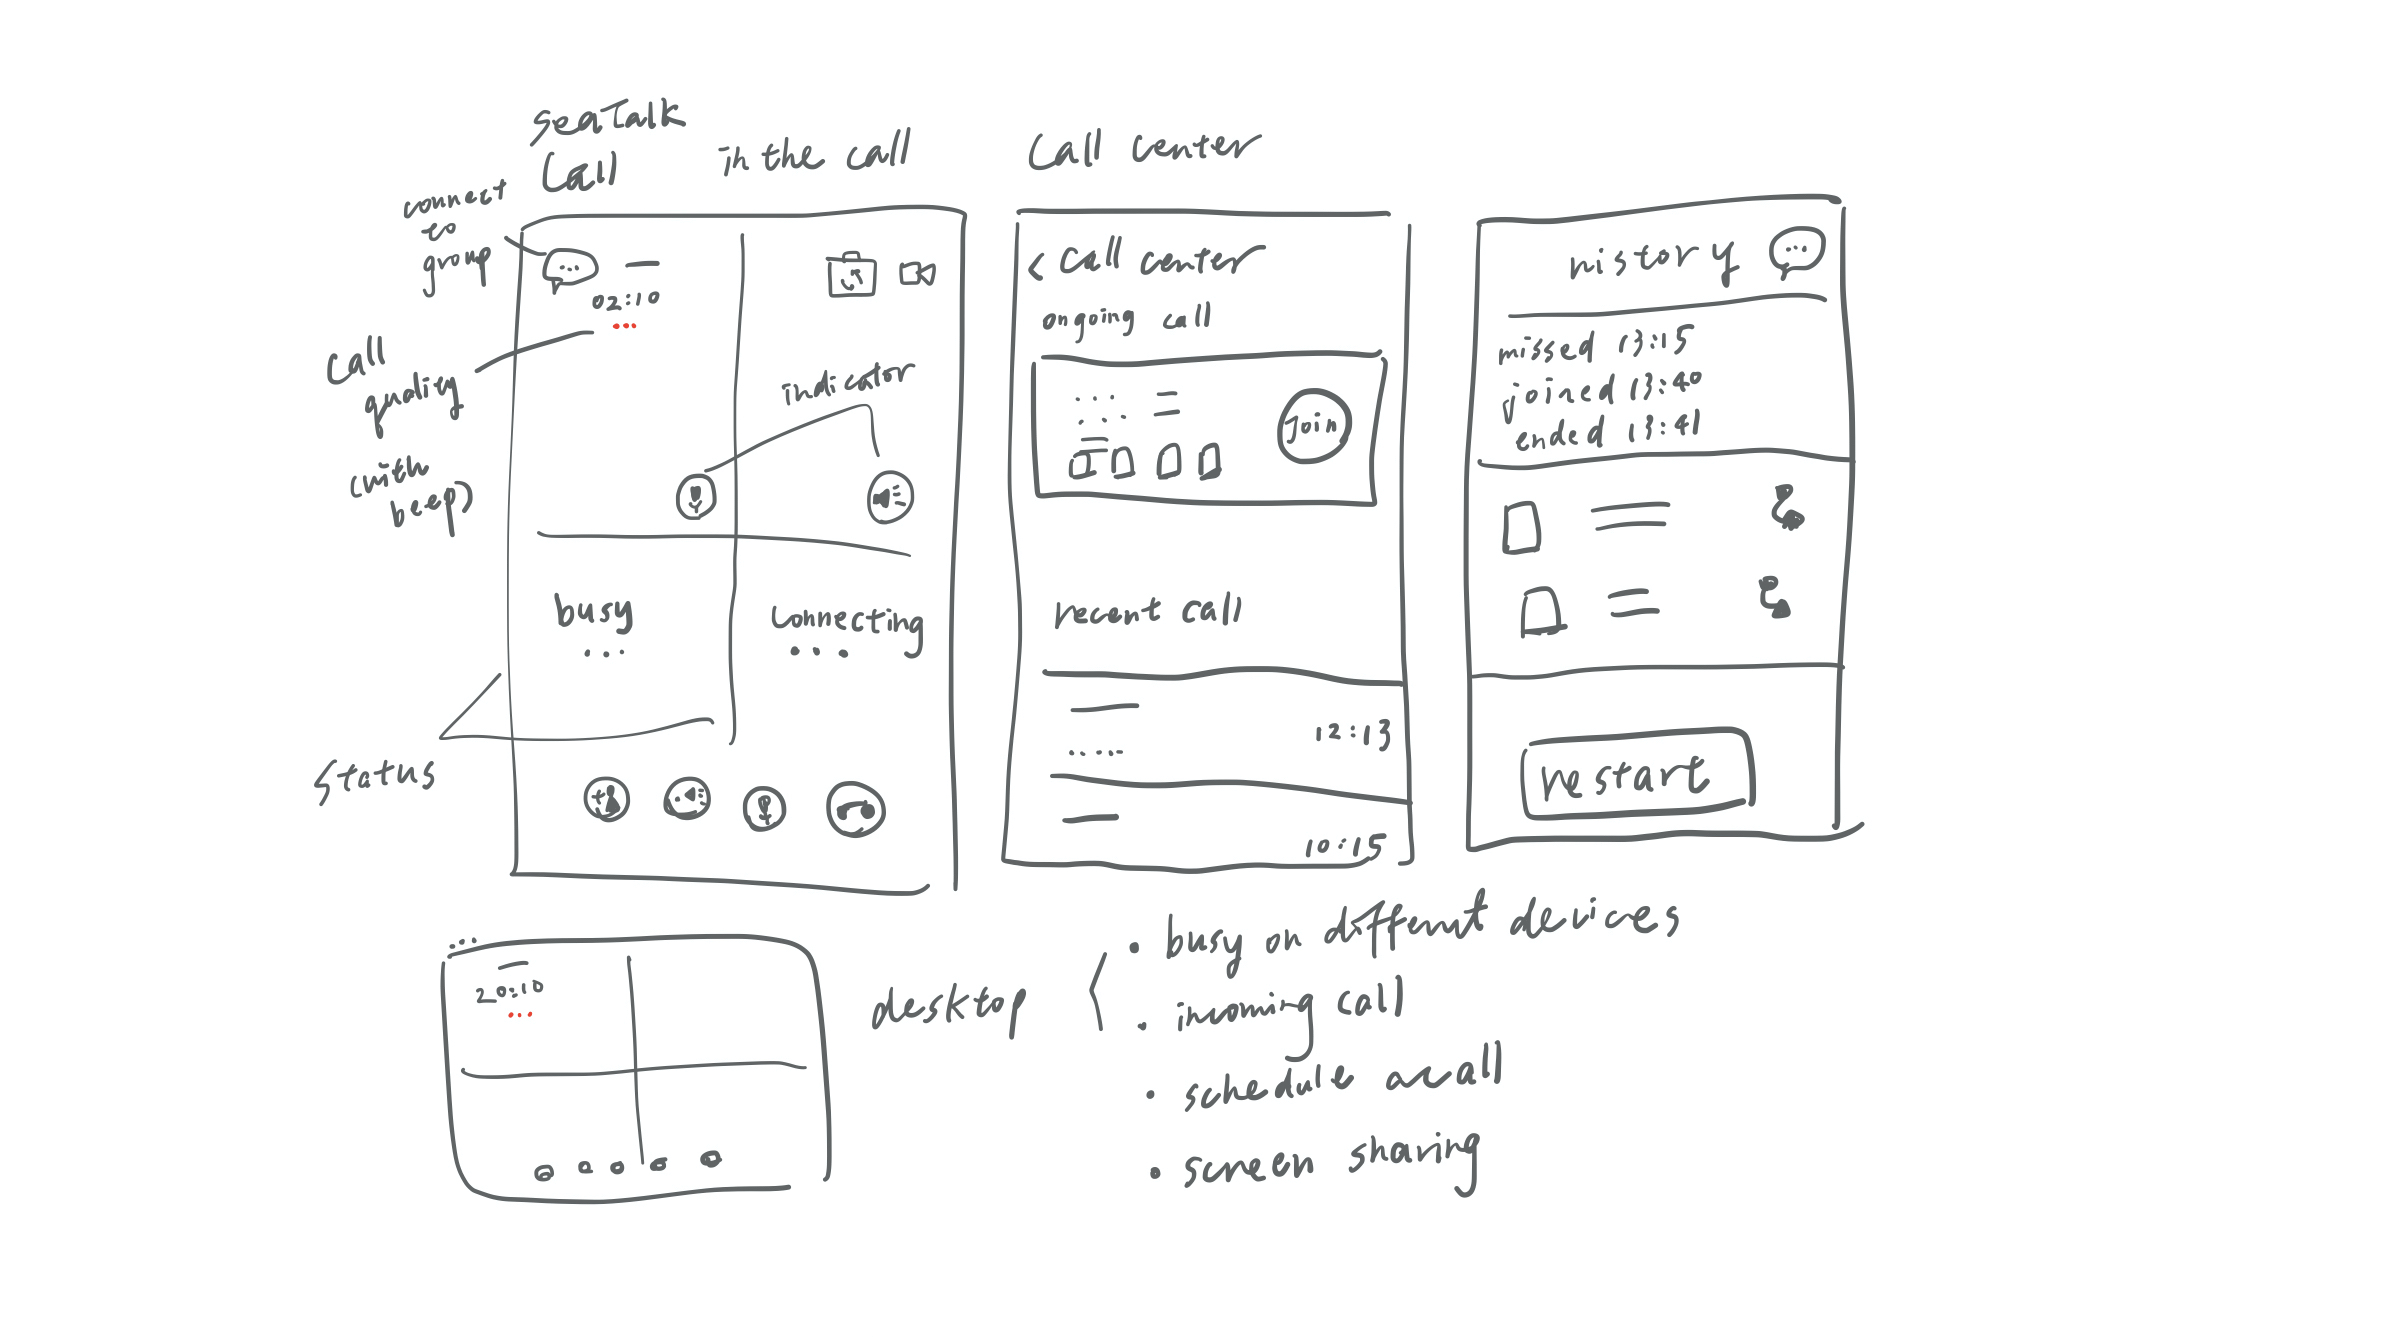 SeaTalk
Call
in the call
connect
to
group
02:10
Call
quality
(with
beep)
indicator
busy
...
connecting
...
Status
Call center
< Call center
ongoing call
Join
recent call
12:13
10:15
history
missed 13:15
joined 13:40
ended 13:41
restart
20:10
desktop
• busy on different devices
• incoming call
• schedule a call
• screen sharing